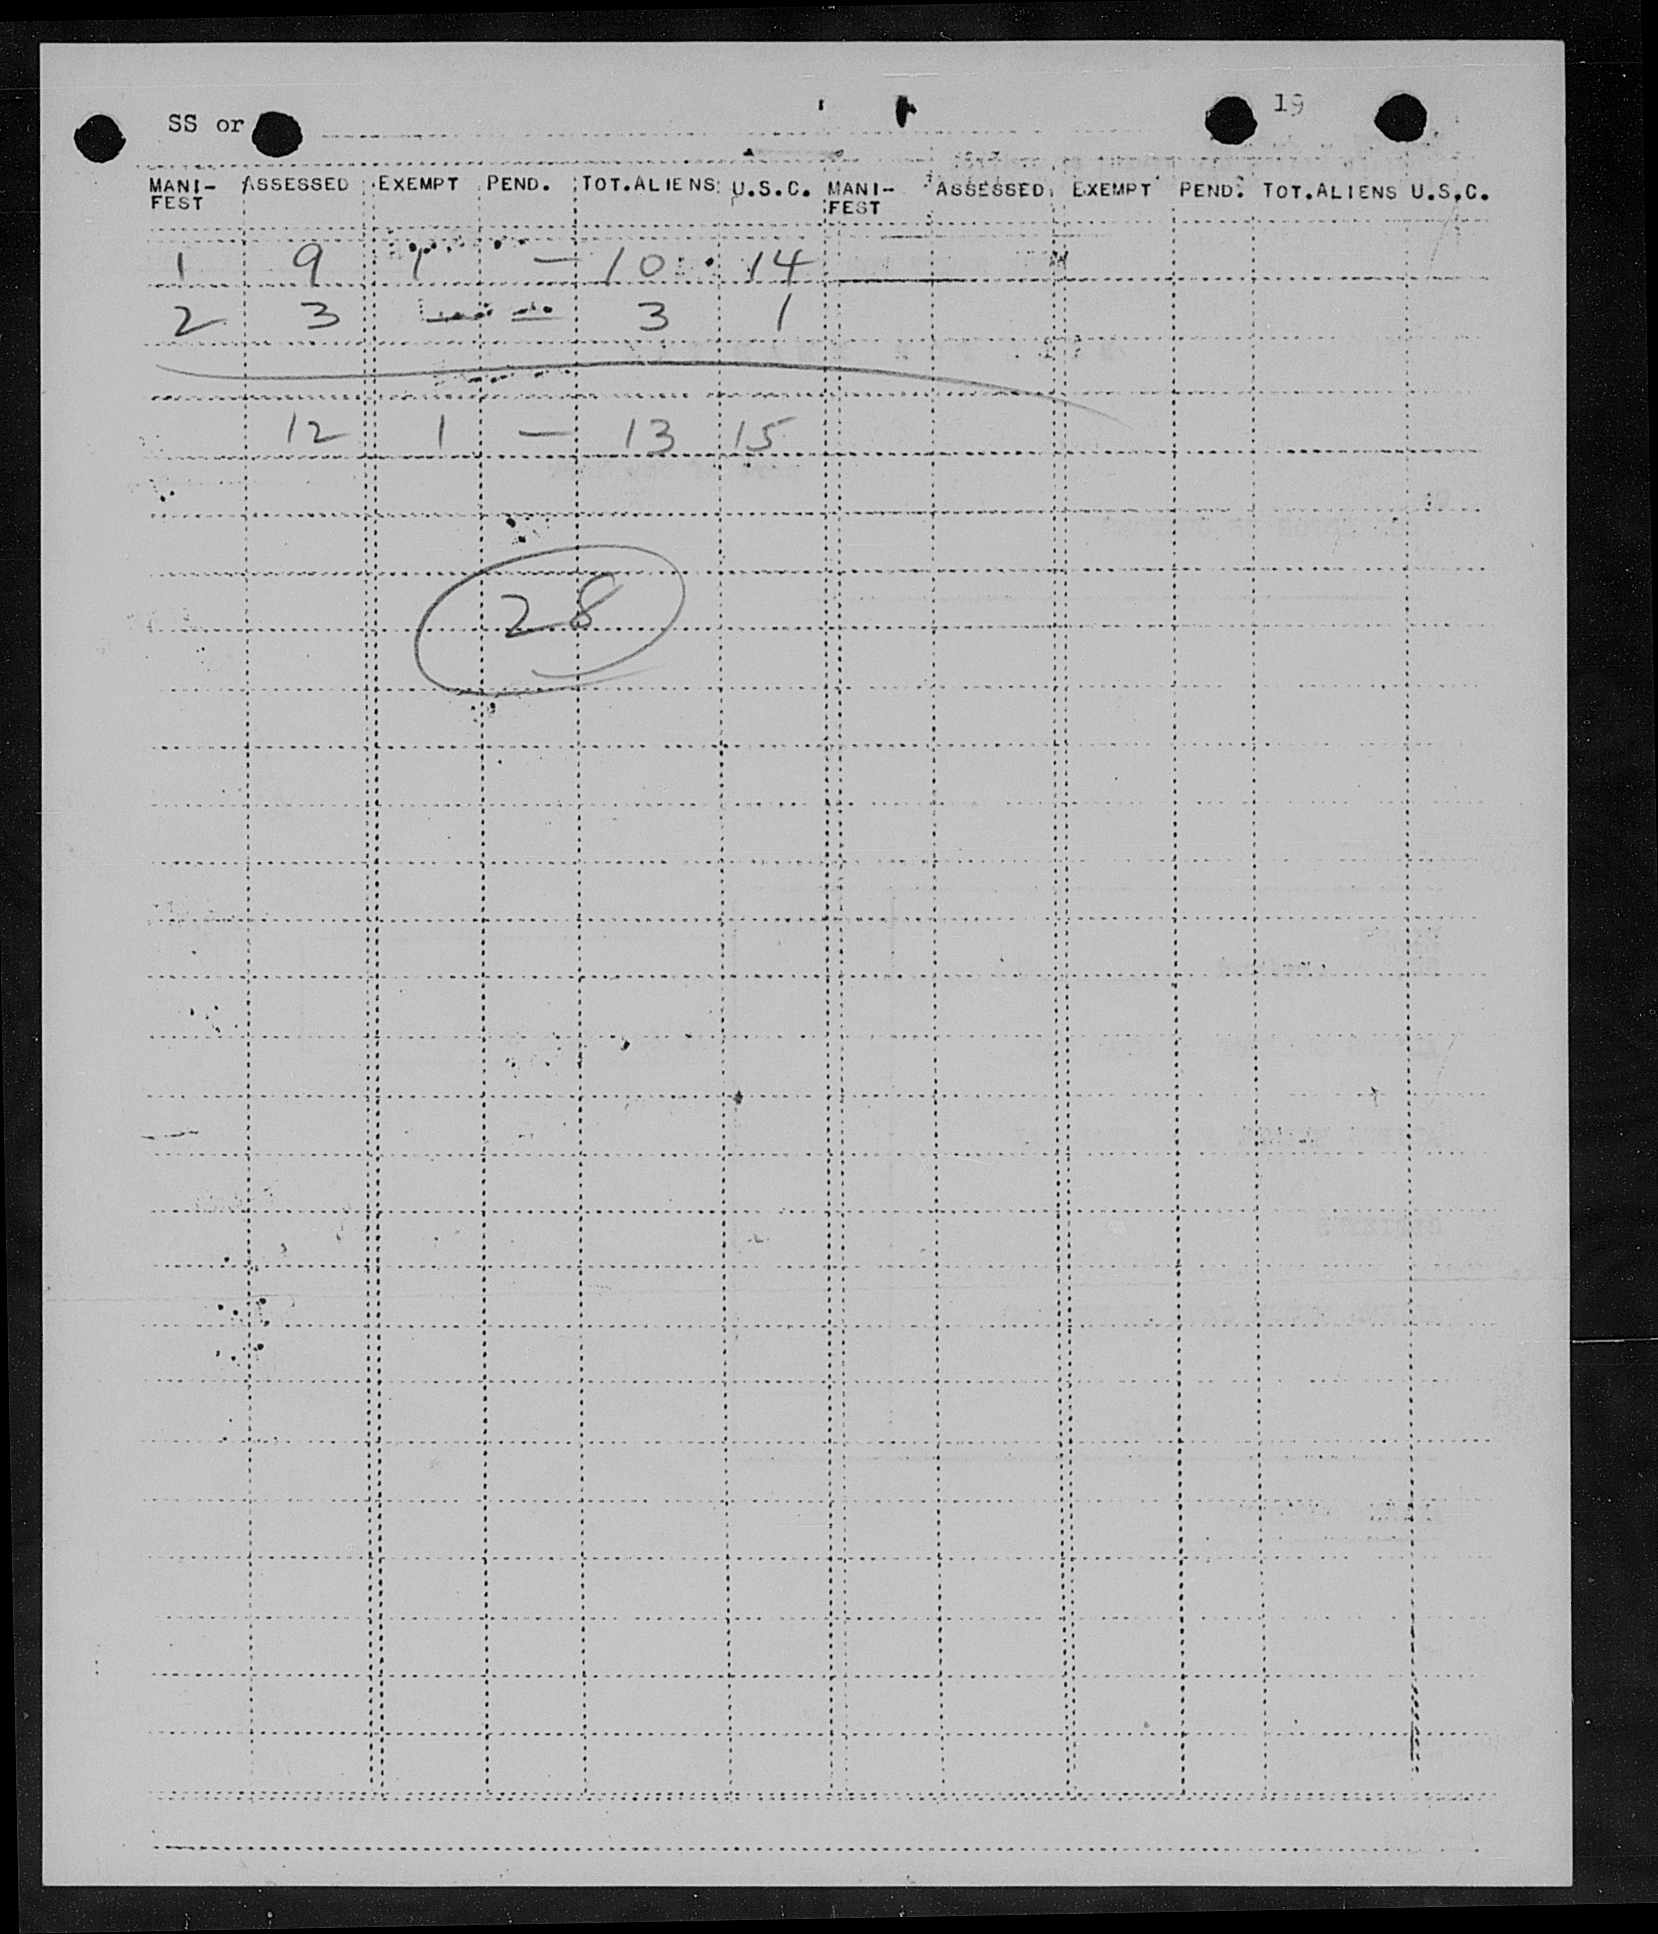 SS or 19
MANI- ASSESSED EXEMPT PEND. TOT.ALIENS U.S.C. MANI- ASSESSED EXEMPT PEND. TOT.ALIENS U.S.C.
FEST FEST
1 9 1 — 10 14
2 3 — — 3 1
12 1 — 13 15
28